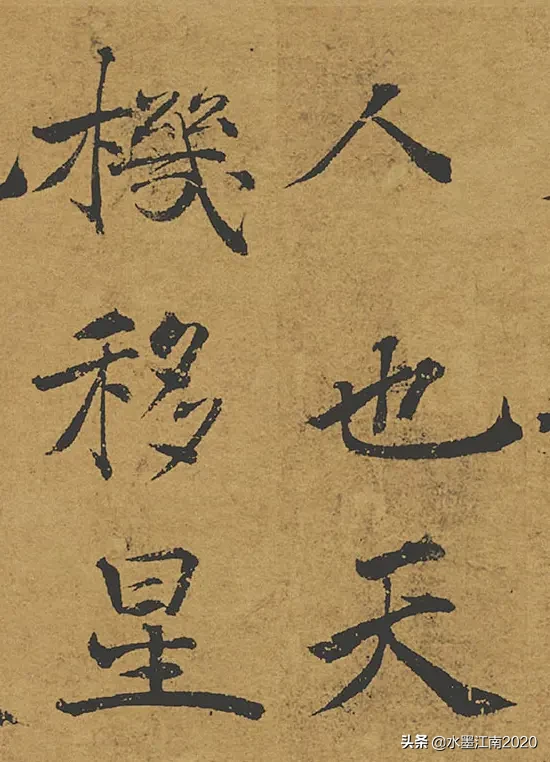 人也天
機移星
头条 @水墨江南2020